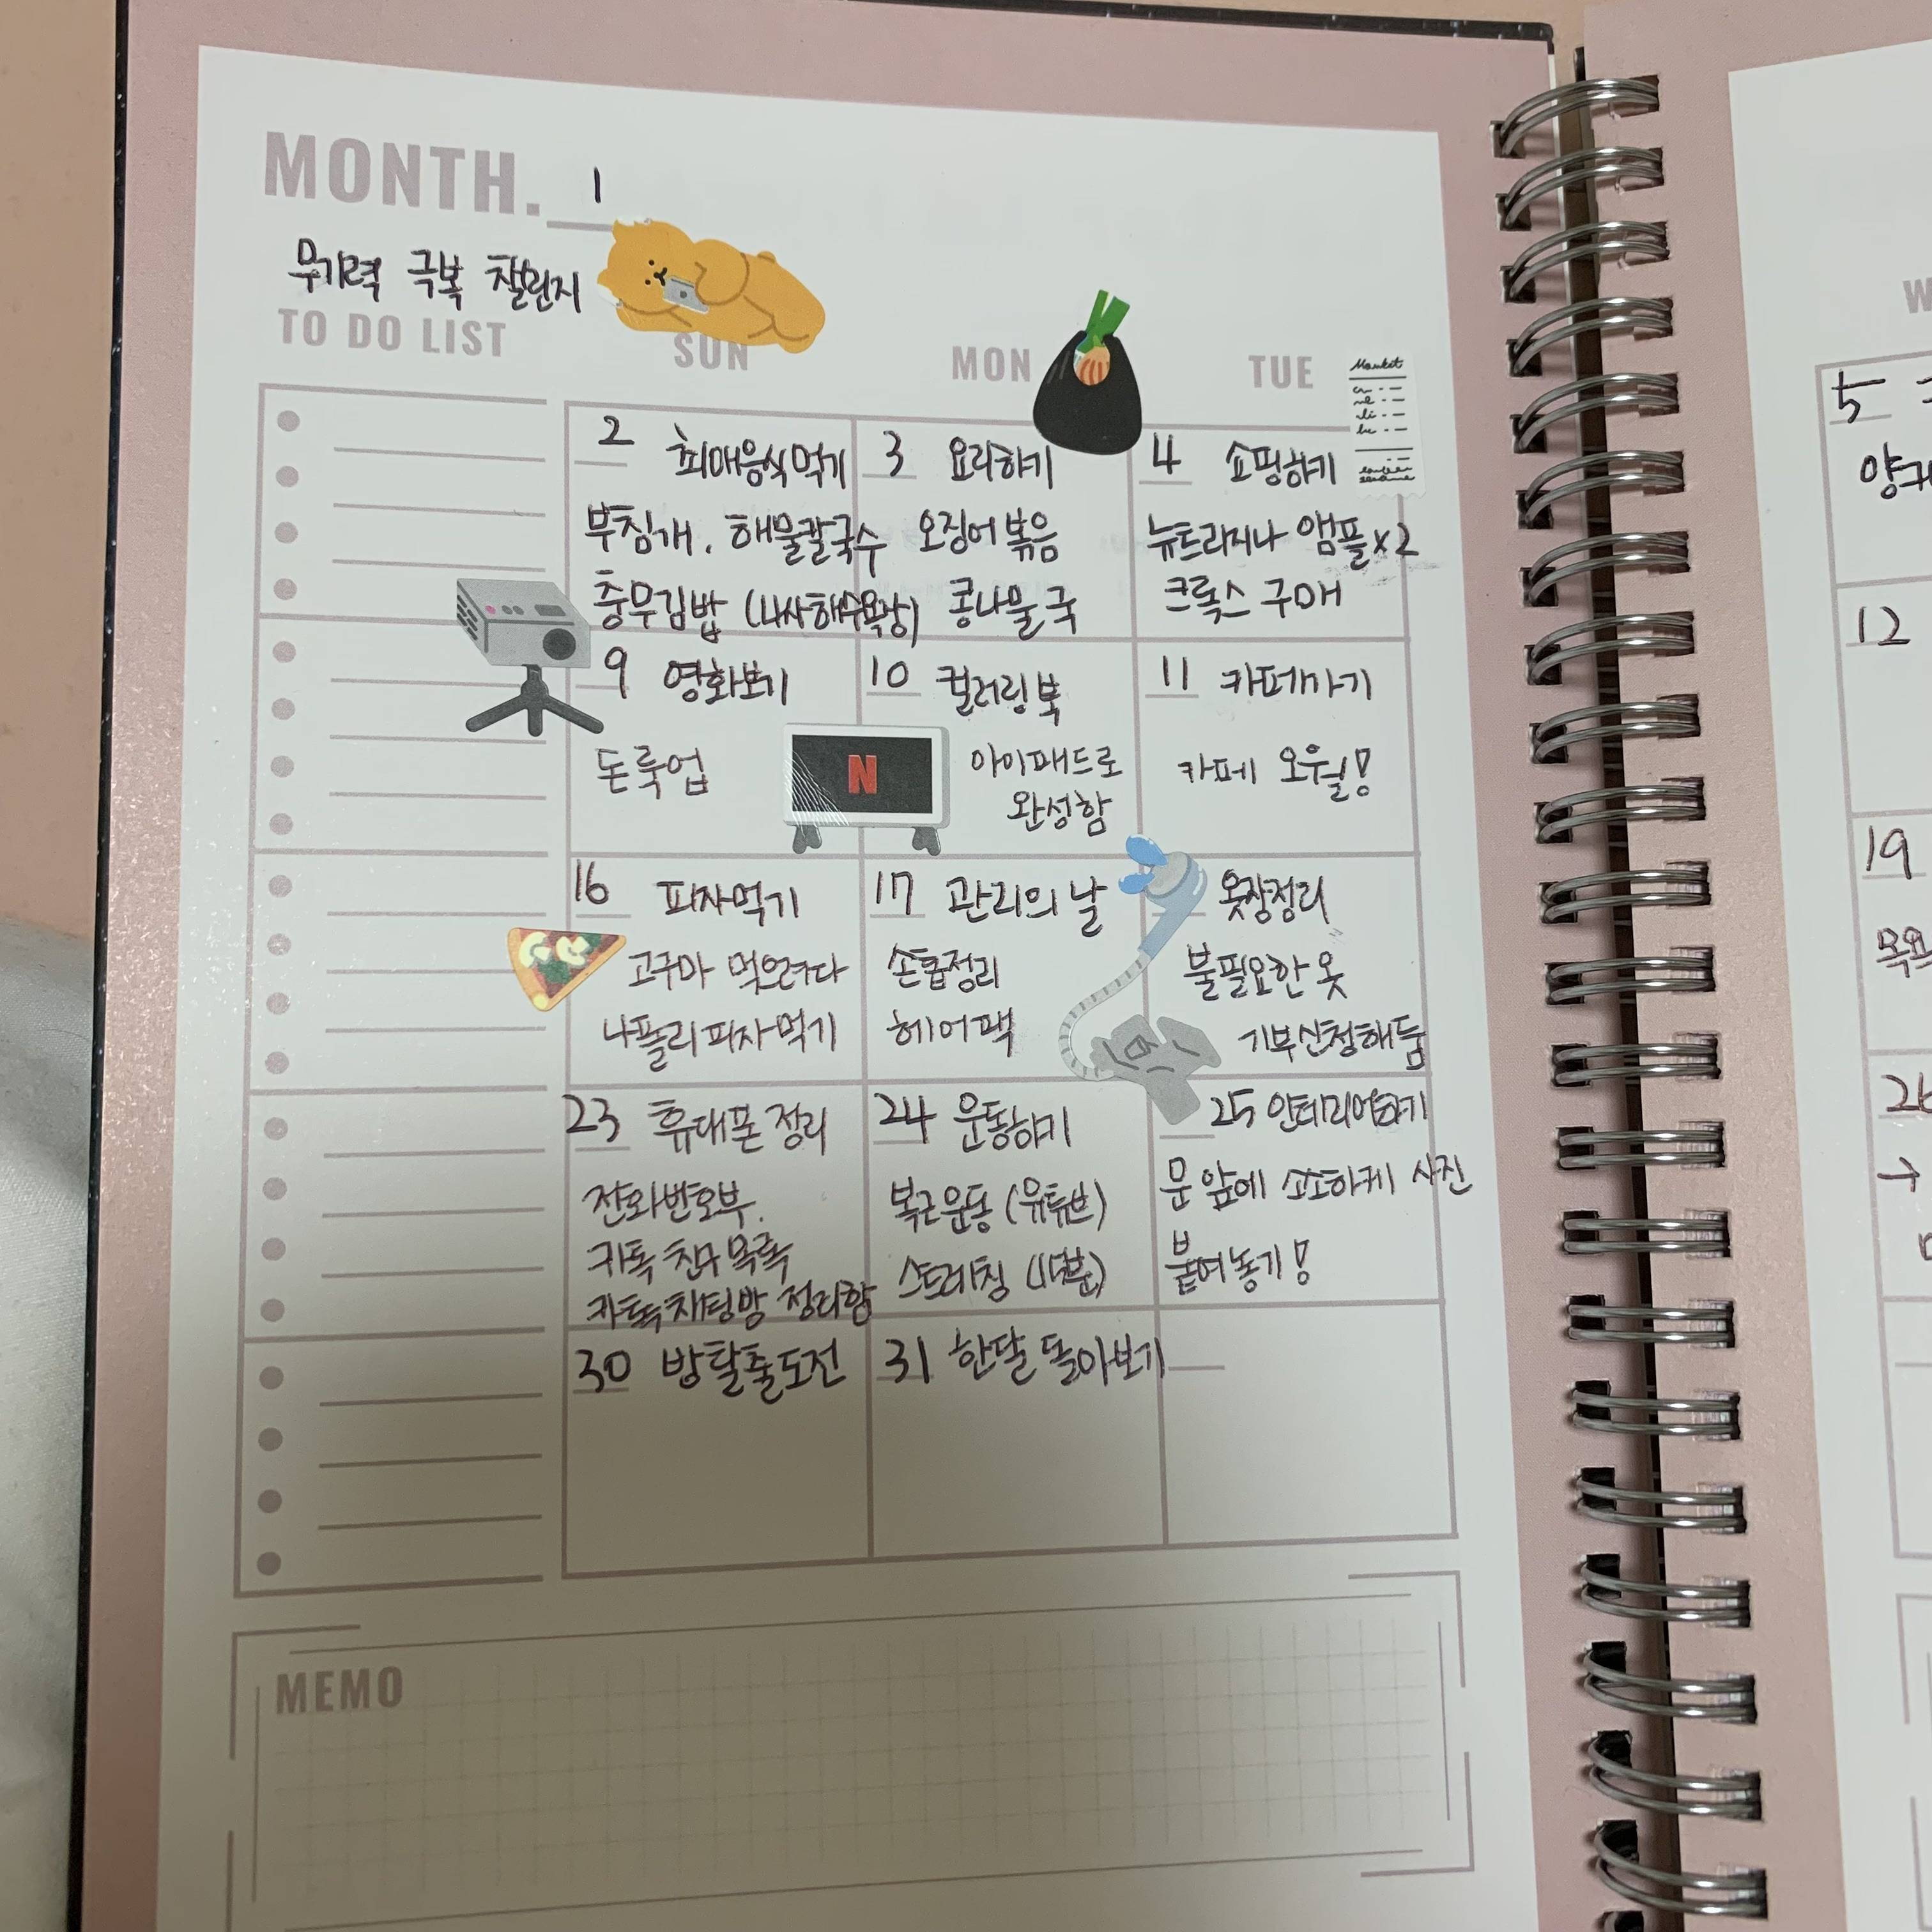 MONTH. 1
무기력 극복 챌린지
TO DO LIST
SUN
MON
TUE
Market
2 최애음식먹기
부침개, 해물칼국수
충무김밥 (나사해수욕장)
3 요리하기
오징어볶음
콩나물국
4 쇼핑하기
뉴트라지나 앰플x2
크록스 구매
9 영화보기
돈룩업
N
10 컬러링북
아이패드로
완성함
11 카페가기
카페 오월!
16 피자먹기
고구마 먹으려다
나폴리피자먹기
17 관리의 날
손톱정리
헤어팩
옷장정리
불필요한 옷
기부신청해둠
23 휴대폰 정리
전화번호부.
카톡 친구 목록
카톡채팅방 정리함
24 운동하기
복근운동 (유튜브)
스트레칭
25 인테리어하기
문 앞에 소소하게 사진
붙여놓기!
30 방탈출도전
31 한달 돌아보기
MEMO
W
5
12
19
26
→